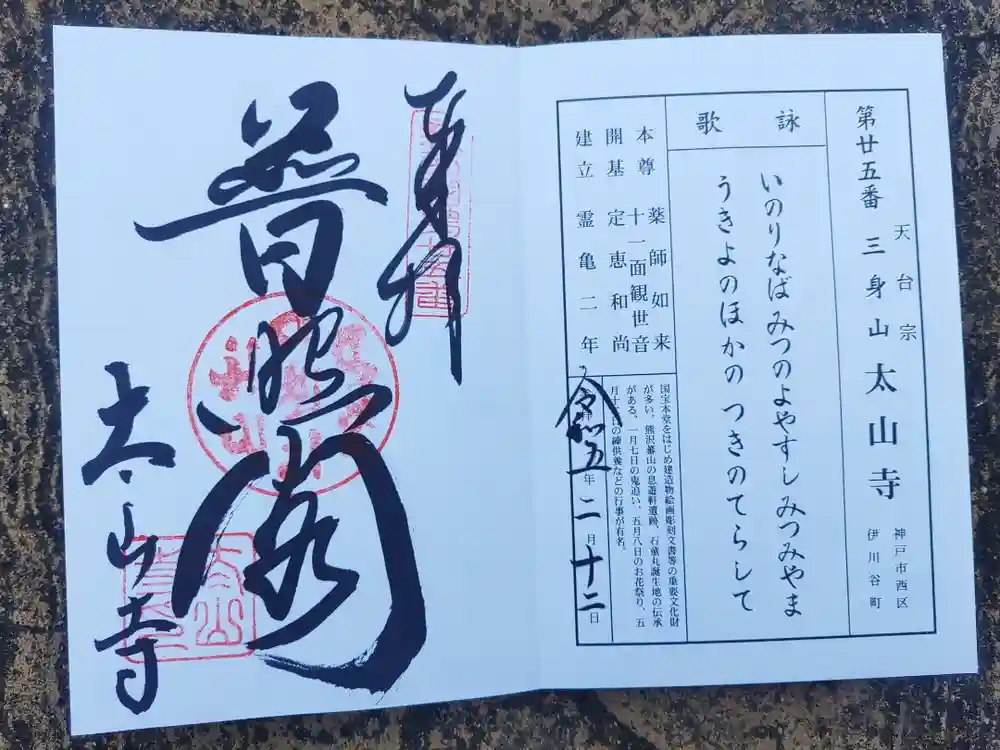 第廿五番 三身山 太山寺
天台宗
神戸市西区
伊川谷町
詠歌
いのりなば みつのよやすし みつみやま
うきよのほかの つきのてらして
本尊 薬師如来
十一面観世音
開基 定恵和尚
建立 霊亀二年
国宝本堂をはじめ建造物絵画彫刻文書等の重要文化財
が多い。熊沢蕃山の息遊軒遺跡、石童丸誕生地の伝承
がある。一月七日の鬼追い、五月八日のお花祭り、五
月十二日の練供養などの行事が有名。
令和五年 二月 十二日
奉拝
普照閣
太山寺